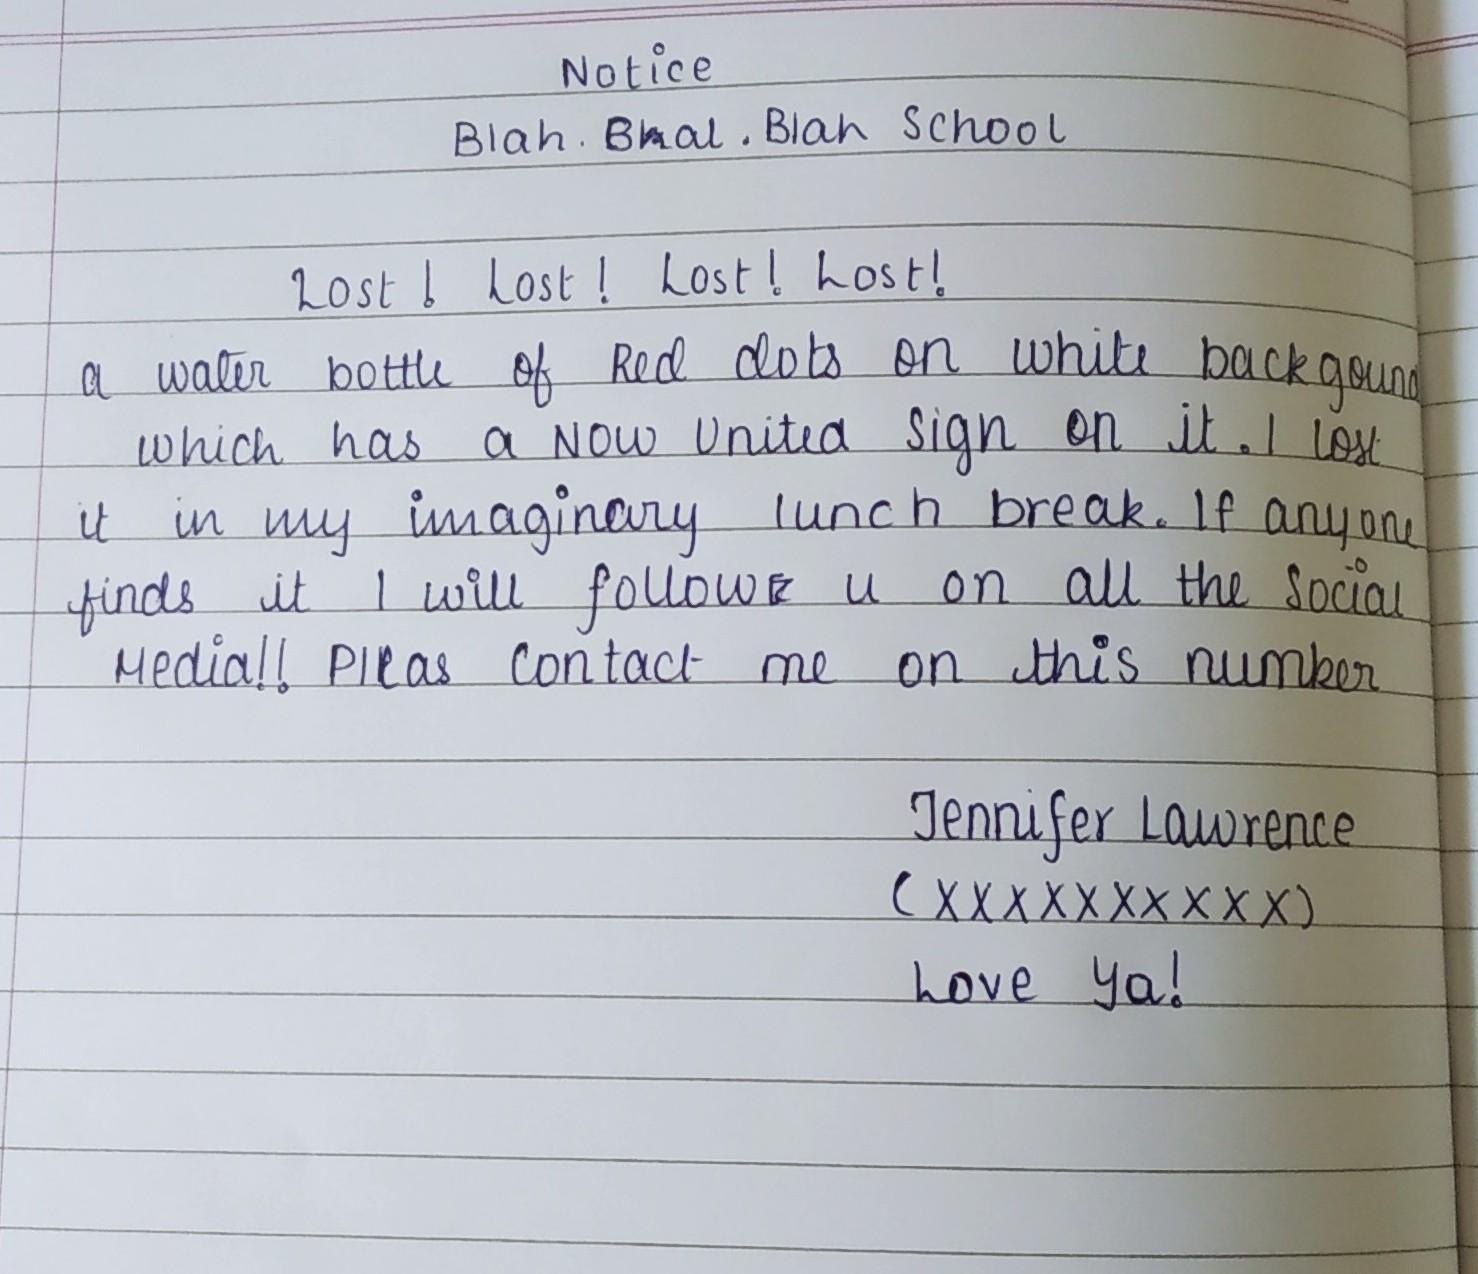 Notice
Blah. Bhal. Blah School
Lost! Lost! Lost! Lost!
a water bottle of Red dots on white backgound
which has a Now United sign on it. I lost
it in my imaginary lunch break. If anyone
finds it I will follow u on all the Social
Media!! Pleas Contact me on this number
Jennifer Lawrence
(XXXXXXXXXX)
Love Ya!